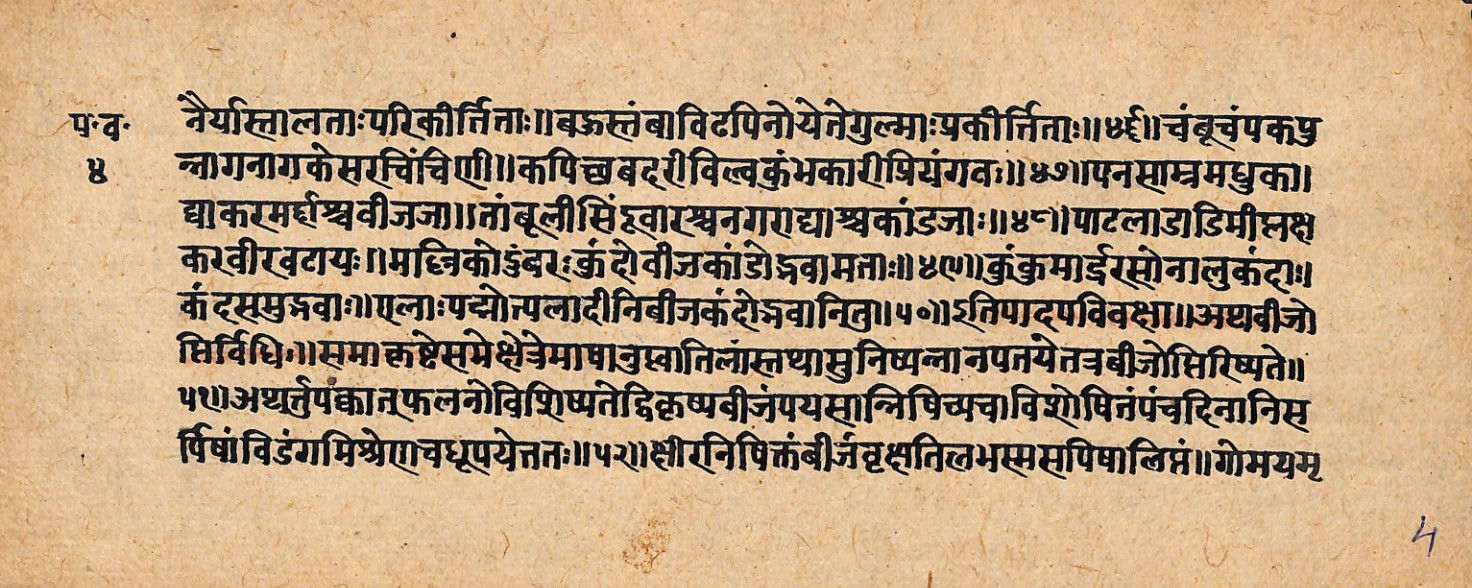 प॰व॰
४
नैर्यास्तालताःपरिकीर्त्तिताः॥बऊस्तंबाविटपिनोयेतेगुल्माःप्रकीर्त्तिताः॥४६॥चंबूचंपकपु
न्नागनागकेसरचिंचिणी॥कपिच्छबदरीविल्वकुंभकारीप्रियंगवः॥४७॥पनसाम्रमधुका॥
द्याकरमर्द्दाश्चवीजजा॥तांबूलीसिंदूवारश्चनगराद्याश्चकांडजाः॥४८॥पाटलाडाडिमीप्लक्ष
करवीरवटायः॥मल्लिकोडुंबरःकुंदोवीजकांडोद्भवामताः॥४९॥कुंकुमार्द्ररसोनालुकंदाः।
कंदसमुद्भवाः॥एलाःपद्मोत्पलादीनिबीजकंदोद्भवानितु॥५०॥इतिपादपविवक्षा॥अथवीजो
प्तिर्विधिः॥समाकृष्टेसमेक्षेत्रेमाषानुप्त्वातिलांस्तथासुनिष्पन्नानपतयेतत्रबीजोप्तिरिष्यते॥
५१॥अथर्त्तुपंक्कातफलनोविशिष्यतेद्विकृष्यबीजंपयसान्निषिच्यचाविशोषितंपंचदिनानिस
र्पिषांविडंगमिश्रेणचधूपयेत्ततः॥५२॥क्षीरनिषिक्तंबीजंवृक्षतिलभस्मसपिषालिप्तं॥गोमयमृ
4